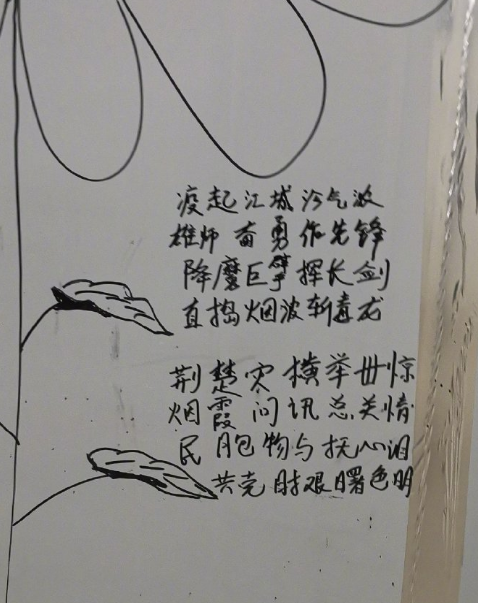 疫起江城沴气波
雄师奋勇作先锋
降魔巨擘挥长剑
直捣烟波斩毒龙
荆楚灾横举世惊
烟霞问讯总关情
民胞物与抚心泪
共克时艰曙色明